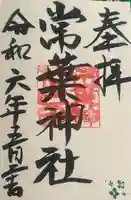 奉拝
常葉神社
令和六年五月二日